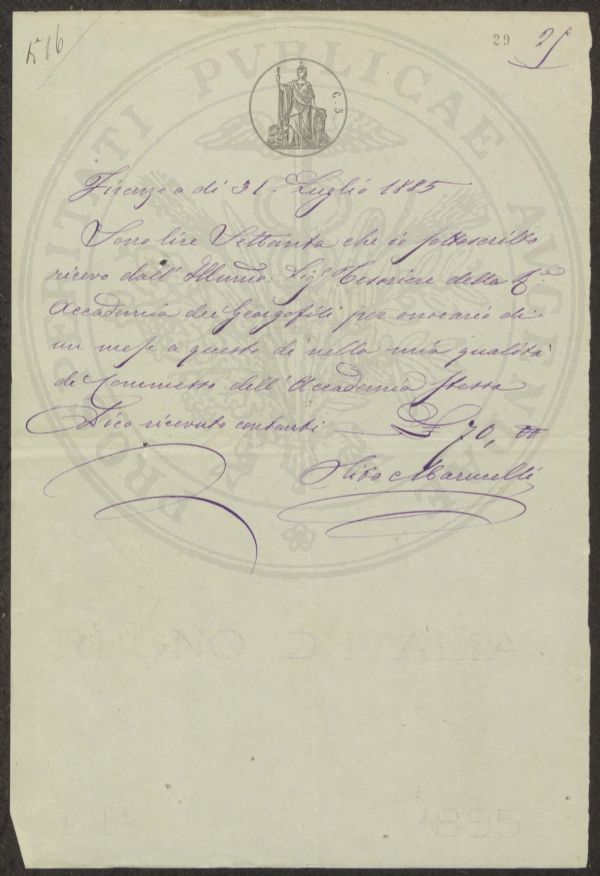 № 16
29
25
C. 5.
PROSPERITATI PVBLICAE AVGENDAE
Firenze a dì 31. Luglio 1885
Sono lire Settanta che io sottoscritto
ricevo dall' Illumo: Sigr Tesoriere della Ra
Accademia dei Georgofili per onorario di
un mese a questo dì nella mia qualità
di Commesso dell' Accademia stessa
Dico ricevuto contanti £ 70, 00
Marucelli
REGNO D'ITALIA
1885